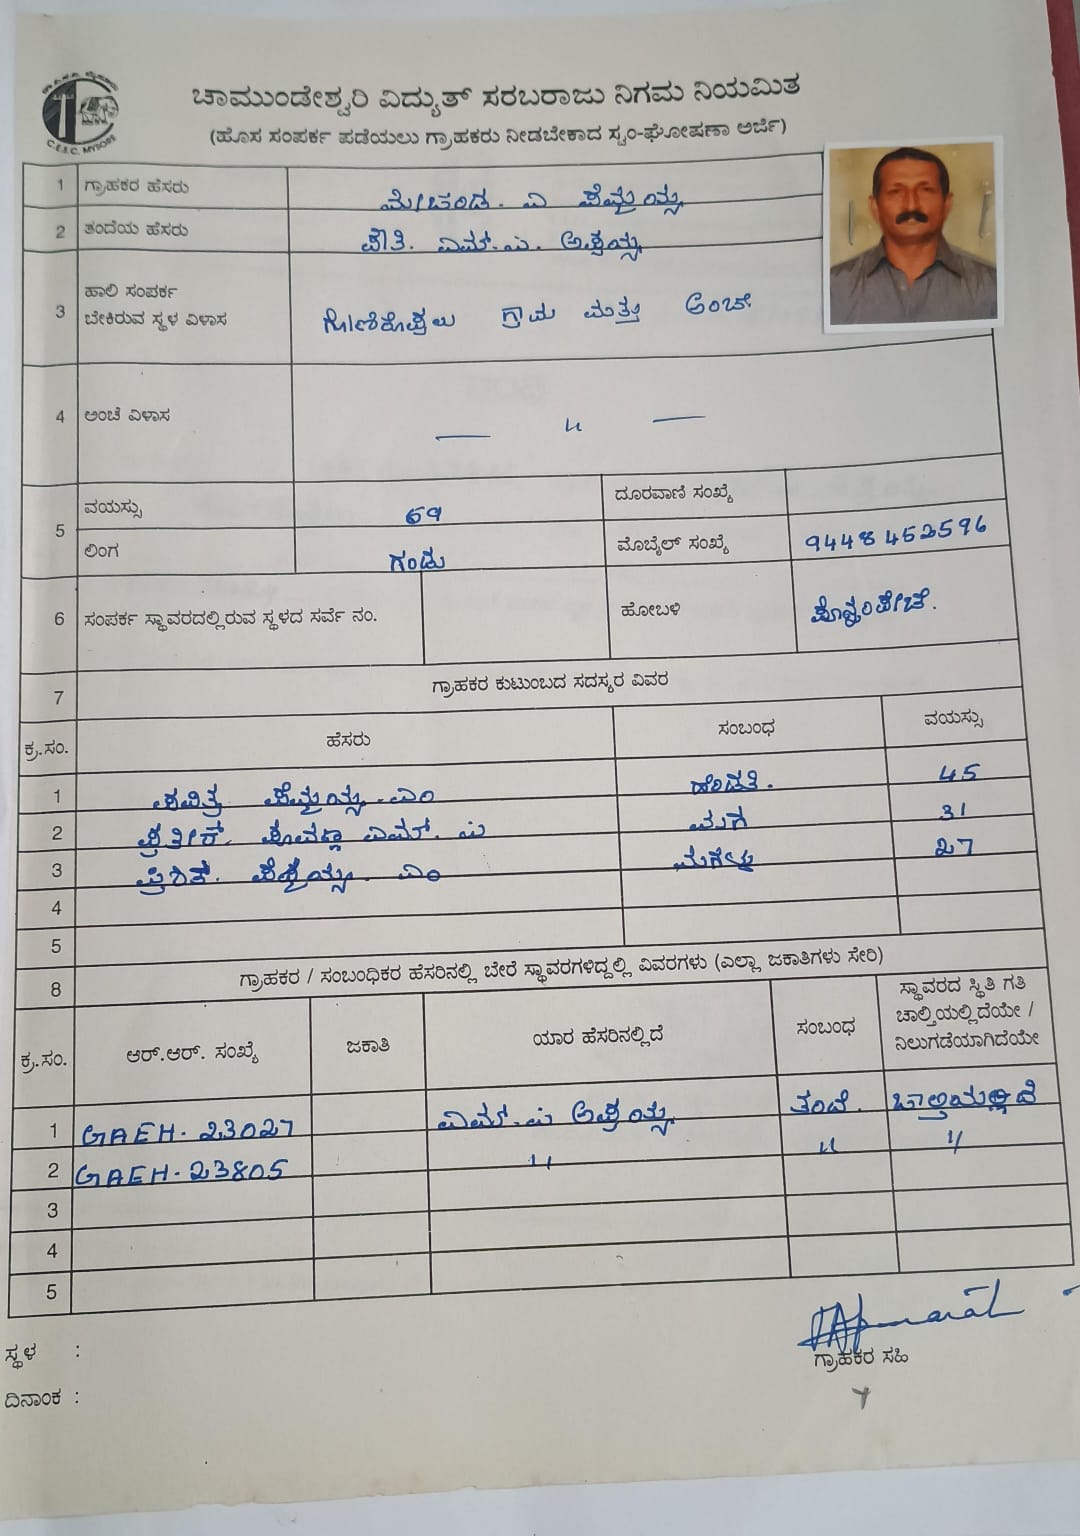 C.E.S.C. MYSORE
ಚಾಮುಂಡೇಶ್ವರಿ ವಿದ್ಯುತ್ ಸರಬರಾಜು ನಿಗಮ ನಿಯಮಿತ
(ಹೊಸ ಸಂಪರ್ಕ ಪಡೆಯಲು ಗ್ರಾಹಕರು ನೀಡಬೇಕಾದ ಸ್ವಂ-ಘೋಷಣಾ ಅರ್ಜಿ)
1 ಗ್ರಾಹಕರ ಹೆಸರು
2 ತಂದೆಯ ಹೆಸರು
3 ಹಾಲಿ ಸಂಪರ್ಕ
ಬೇಕಿರುವ ಸ್ಥಳ ವಿಳಾಸ ಗೋಣಿಕೊಪ್ಪಲು ಗ್ರಾಮ ಮತ್ತು ಅಂಚೆ
4 ಅಂಚೆ ವಿಳಾಸ — 〃 —
5 ವಯಸ್ಸು 69 ದೂರವಾಣಿ ಸಂಖ್ಯೆ
ಲಿಂಗ ಗಂಡು ಮೊಬೈಲ್ ಸಂಖ್ಯೆ 9448452596
6 ಸಂಪರ್ಕ ಸ್ಥಾವರದಲ್ಲಿರುವ ಸ್ಥಳದ ಸರ್ವೆ ನಂ. ಹೋಬಳಿ ಪೊನ್ನಂಪೇಟೆ.
7 ಗ್ರಾಹಕರ ಕುಟುಂಬದ ಸದಸ್ಯರ ವಿವರ
ಕ್ರ.ಸಂ. ಹೆಸರು ಸಂಬಂಧ ವಯಸ್ಸು
1 ಹೆಂಡತಿ. 45
2 ಮಗ 31
3 ಮಗಳು 27
4
5
8 ಗ್ರಾಹಕರ / ಸಂಬಂಧಿಕರ ಹೆಸರಿನಲ್ಲಿ ಬೇರೆ ಸ್ಥಾವರಗಳಿದ್ದಲ್ಲಿ ವಿವರಗಳು (ಎಲ್ಲಾ ಜಕಾತಿಗಳು ಸೇರಿ)
ಕ್ರ.ಸಂ. ಆರ್.ಆರ್. ಸಂಖ್ಯೆ ಜಕಾತಿ ಯಾರ ಹೆಸರಿನಲ್ಲಿದೆ ಸಂಬಂಧ ಸ್ಥಾವರದ ಸ್ಥಿತಿ ಗತಿ
ಚಾಲ್ತಿಯಲ್ಲಿದೆಯೇ /
ನಿಲುಗಡೆಯಾಗಿದೆಯೇ
1 GAEH. 23027 ತಂದೆ. ಚಾಲ್ತಿಯಲ್ಲಿದೆ
2 GAEH. 23805 〃 〃 〃
3
4
5
ಸ್ಥಳ :
ಗ್ರಾಹಕರ ಸಹಿ
ದಿನಾಂಕ :